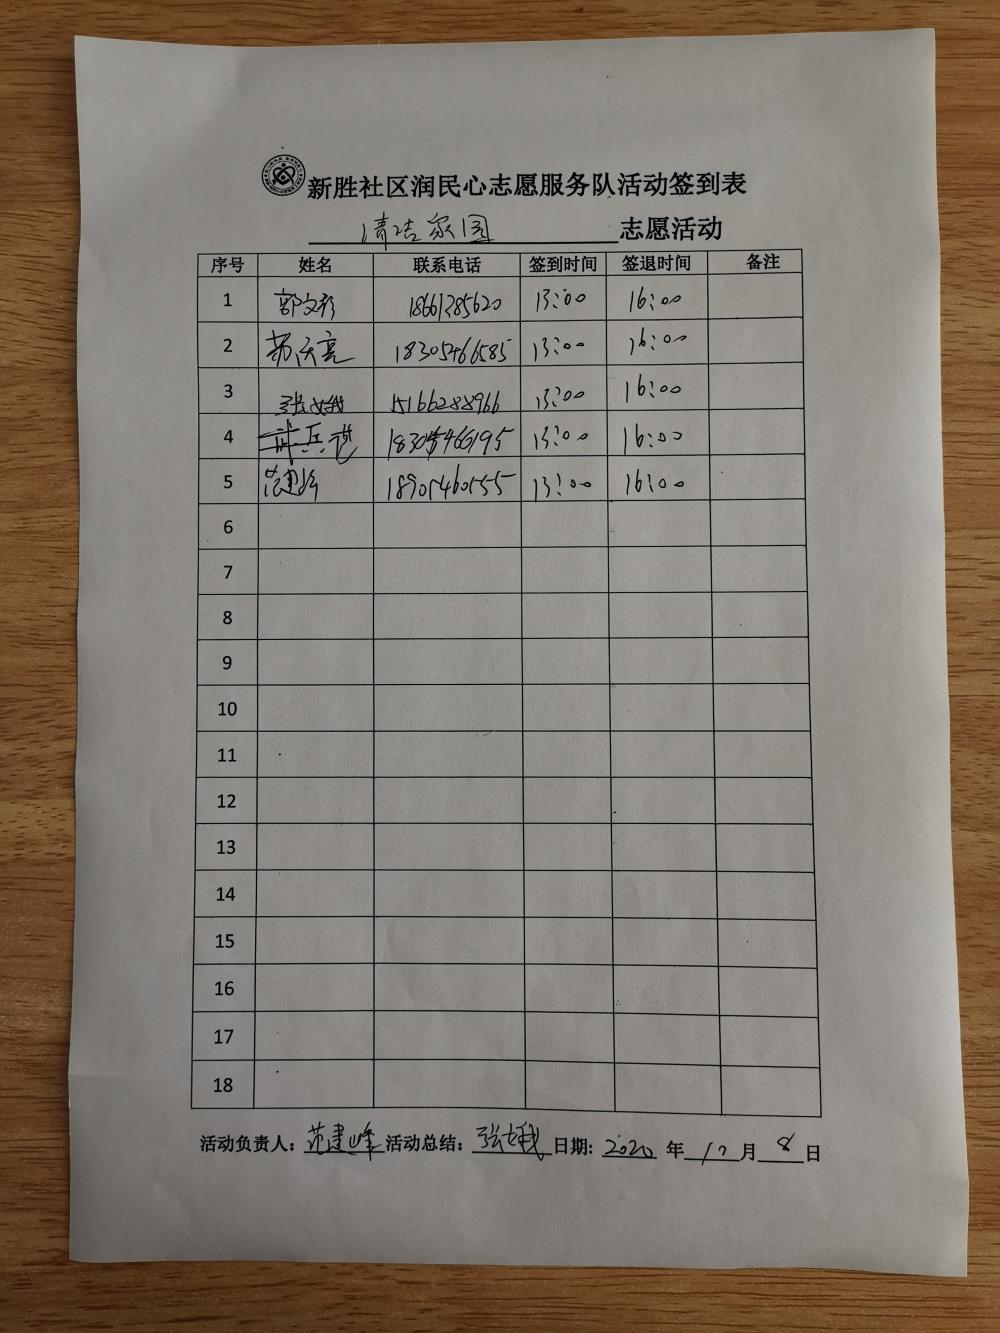 新胜社区润民心志愿服务队活动签到表
清洁家园 志愿活动
序号 姓名 联系电话 签到时间 签退时间 备注
1 郭文彩 18661385620 13:00 16:00
2 苏庆亮 18305466585 13:00 16:00
3 张娥 15166288966 13:00 16:00
4 武兵 13:00 16:00
5 范建峰 18905460555 13:00 16:00
6
7
8
9
10
11
12
13
14
15
16
17
18
活动负责人: 范建峰 活动总结: 张娥 日期: 2020 年 月 8 日